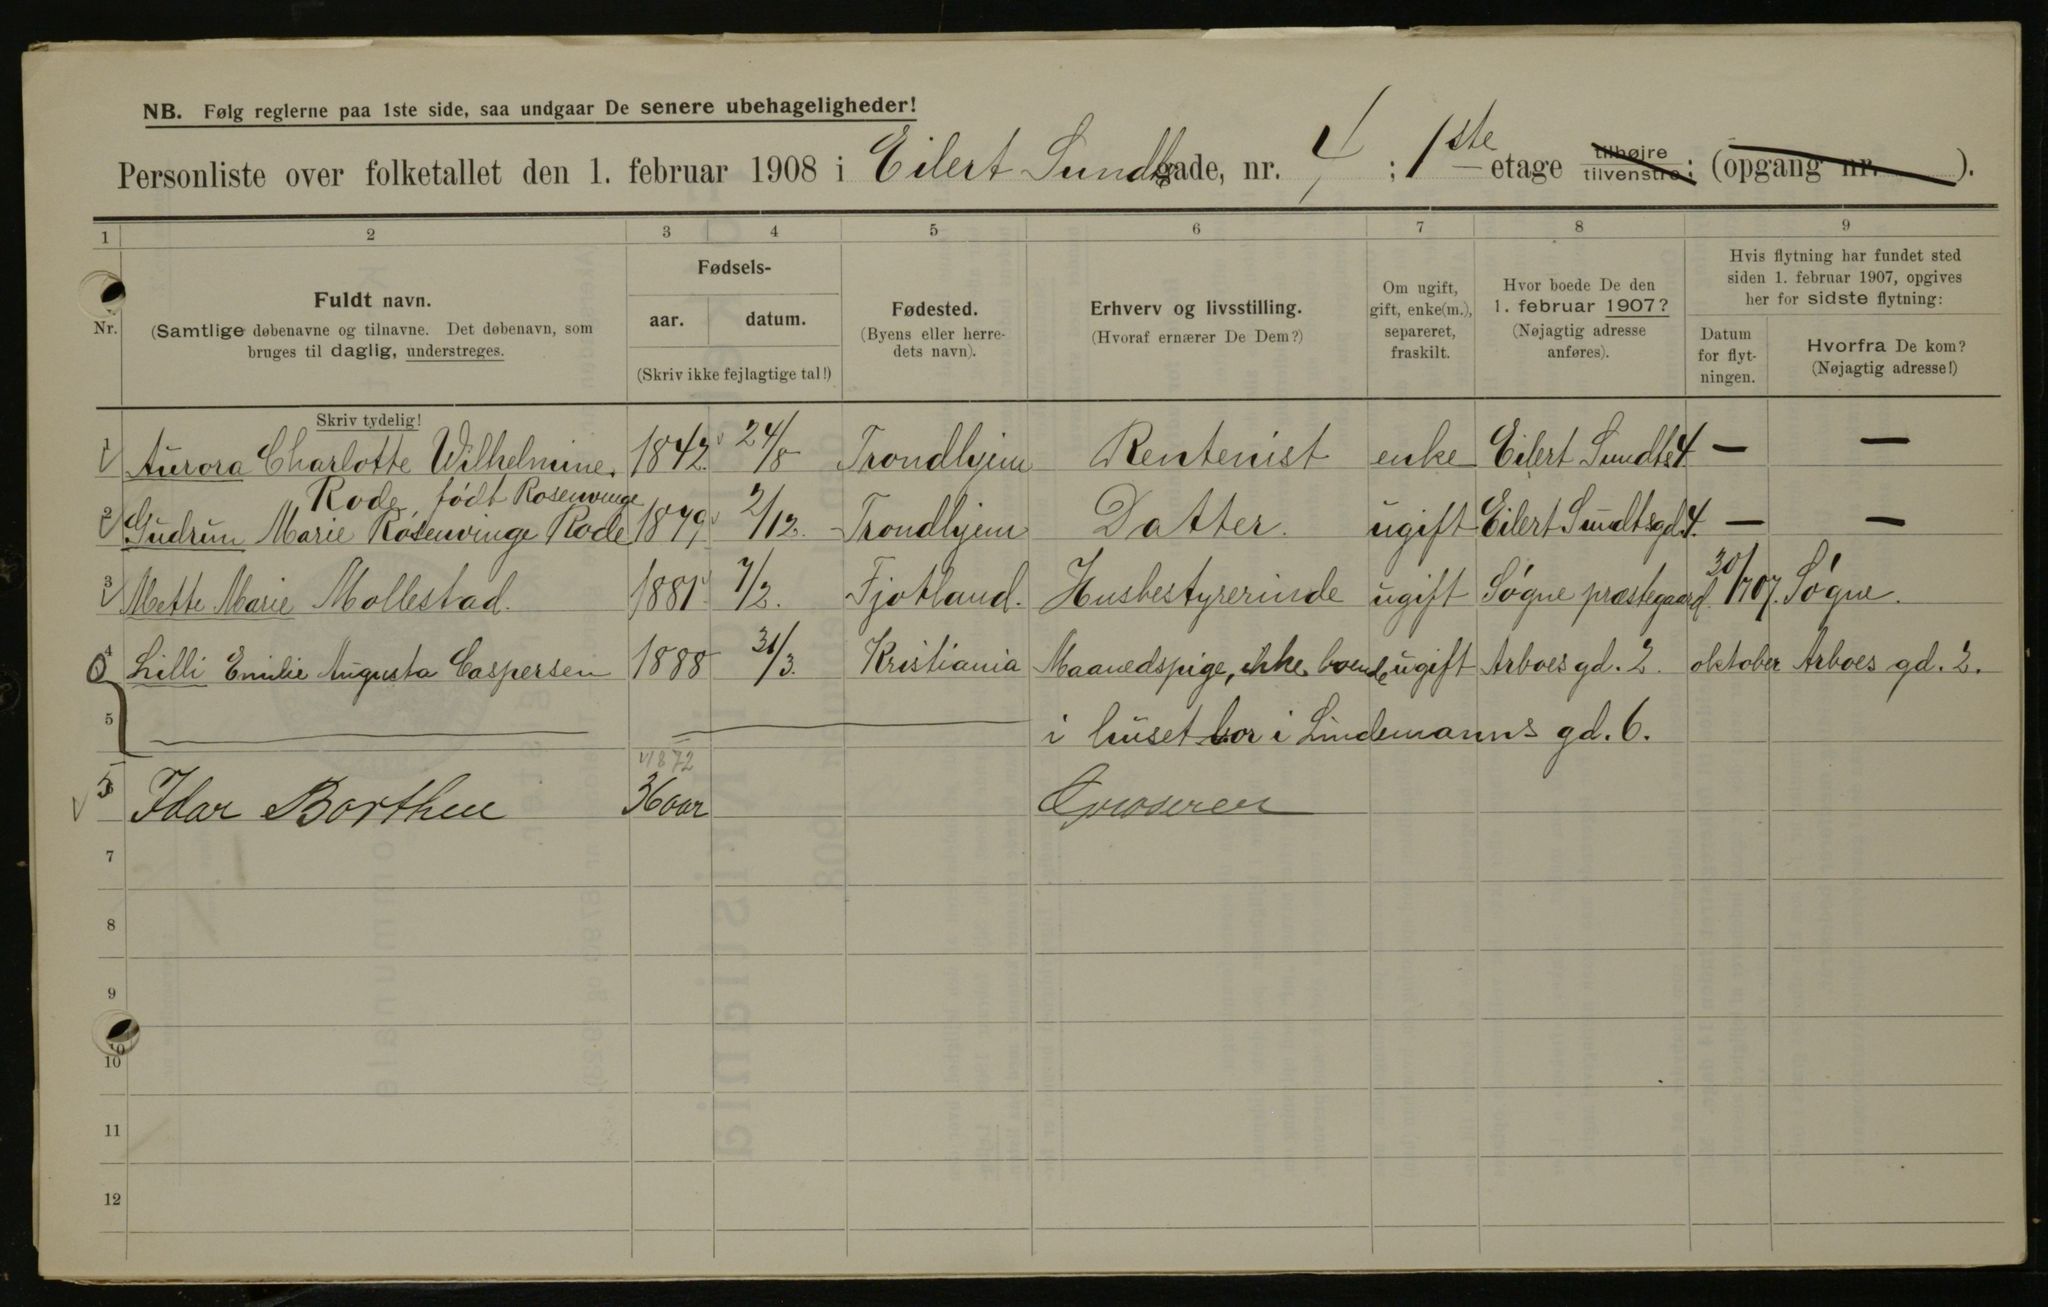 NB. Følg reglerne paa 1ste side, saa undgaar De senere ubehageligheder!
Personliste over folketallet den 1. februar 1908 i Eilert Sundtsgade, nr. 4 ; 1ste etage tilhøjre tilvenstre; (opgang nr. ).
1 2 3 4 5 6 7 8 9
Nr.
Fuldt navn.
(Samtlige døbenavne og tilnavne. Det døbenavn, som
bruges til daglig, understreges.
Skriv tydelig!
Fødsels-
aar. datum.
(Skriv ikke fejlagtige tal!)
Fødested.
(Byens eller herre-
dets navn).
Erhverv og livsstilling.
(Hvoraf ernærer De Dem?)
Om ugift,
gift, enke(m.),
separeret,
fraskilt.
Hvor boede De den
1. februar 1907?
(Nøjagtig adresse
anføres).
Hvis flytning har fundet sted
siden 1. februar 1907, opgives
her for sidste flytning:
Datum
for flyt-
ningen.
Hvorfra De kom?
(Nøjagtig adresse!)
1 Aurora Charlotte Wilhelmine 1842 24/8 Trondhjem Rentenist enke Eilert Sundts 4 — —
Rode født Rosenvinge
2 Gudrun Marie Rosenvinge Rode 1879 2/12. Trondhjem Datter. ugift Eilert Sundtsgd 4. — —
3 Mette Marie Mollestad. 1881 7/2. Fjotland. Husbestyrerinde ugift Søgne præstegaard 30/7 07. Søgne.
4 Lilli Emilie Augusta Caspersen 1888 31/3. Kristiania Maanedspige, ikke boende ugift Arboes gd. 2. oktober Arboes gd. 2.
5 i huset bor i Lindemanns gd. 6.
1872
5 Idar Borthen 36 aar
7
8
9
10
10
11
12